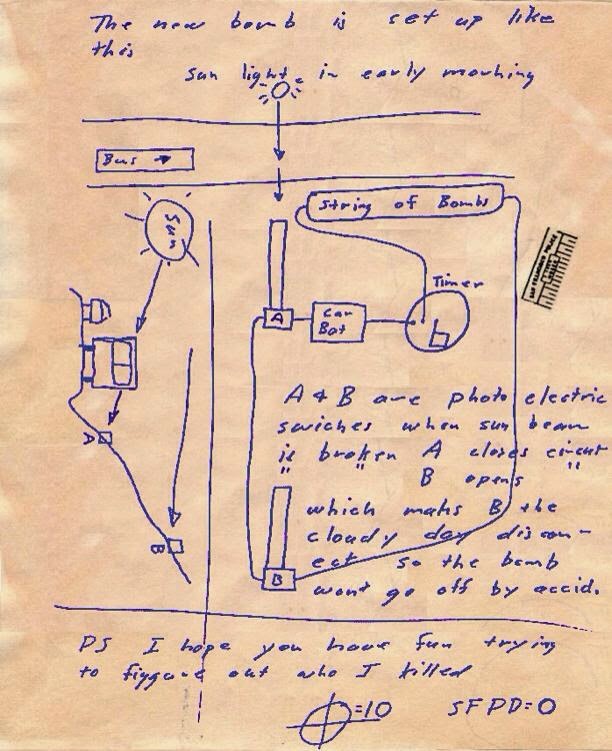 The new bomb is set up like
this
sun light in early morning
Bus
Sun
String of Bombs
Timer
A
Car
Bat
A & B are photo electric
swiches when sun beam
is broken A closes circut
" " B opens "
which mahs B the
cloudy day discon-
ect so the bomb
wont go off by accid.
A
B
B
PS I hope you have fun trying
to figgure out who I killed
=10 SFPD=0